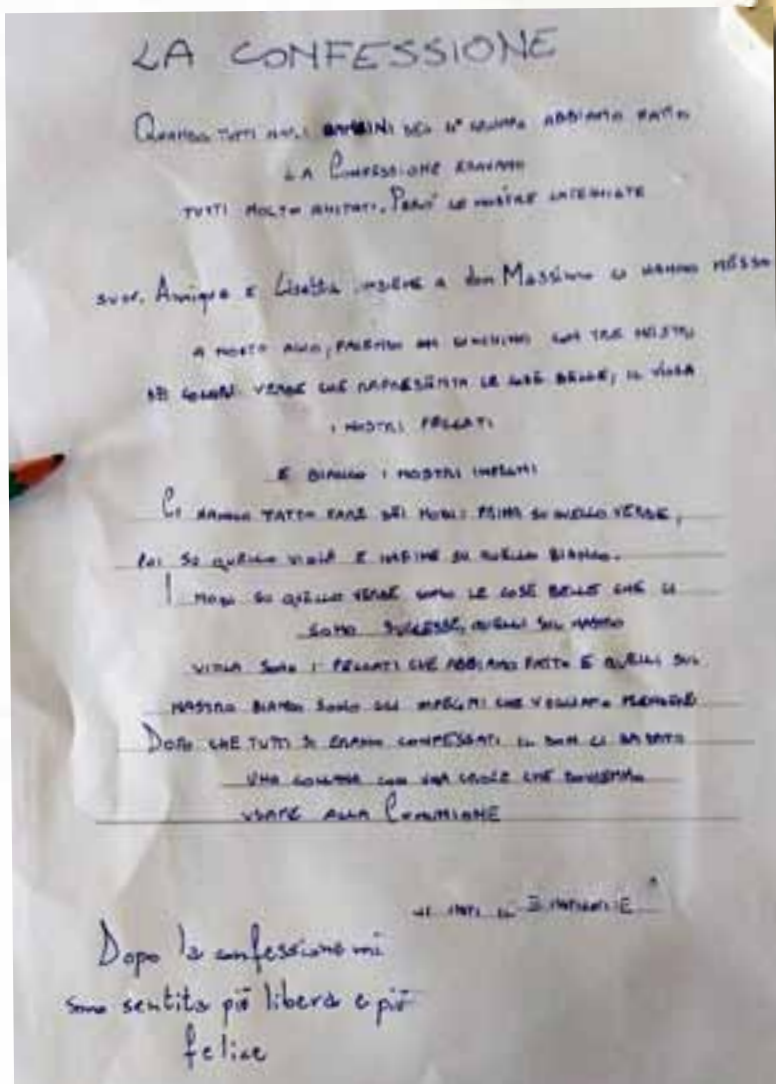 LA CONFESSIONE
QUANDO TUTTI NOI BAMBINI DEL 4° GRUPPO ABBIAMO FATTO
LA CONFESSIONE ERAVAMO
TUTTI MOLTO AGITATI. PERÒ LE NOSTRE CATECHISTE
SUOR. E Lisetta INSIEME A don Massimo CI HANNO MESSO
A NOSTRO AGIO, FACENDO UN CON TRE NASTRI
DEI COLORI: VERDE CHE RAPPRESENTA LE COSE BELLE; IL VIOLA
I NOSTRI PECCATI
E BIANCO I NOSTRI IMPEGNI
CI HANNO FATTO FARE DEI NODI: PRIMA SU QUELLO VERDE,
POI SU QUELLO VIOLA E INFINE SU QUELLO BIANCO.
I NODI SU QUELLO VERDE SONO LE COSE BELLE CHE CI
SONO SUCCESSE, QUELLI SUL NASTRO
VIOLA SONO I PECCATI CHE ABBIAMO FATTO E QUELLI SUL
NASTRO BIANCO SONO GLI IMPEGNI CHE VOGLIAMO PRENDERE
DOPO CHE TUTTI SI ERANO CONFESSATI IL DON CI HA DATO
UNA COLLANA CON UNA CROCE CHE DOVREMO
USARE ALLA COMUNIONE
Dopo la confessione mi
sono sentita più libera e più
felice